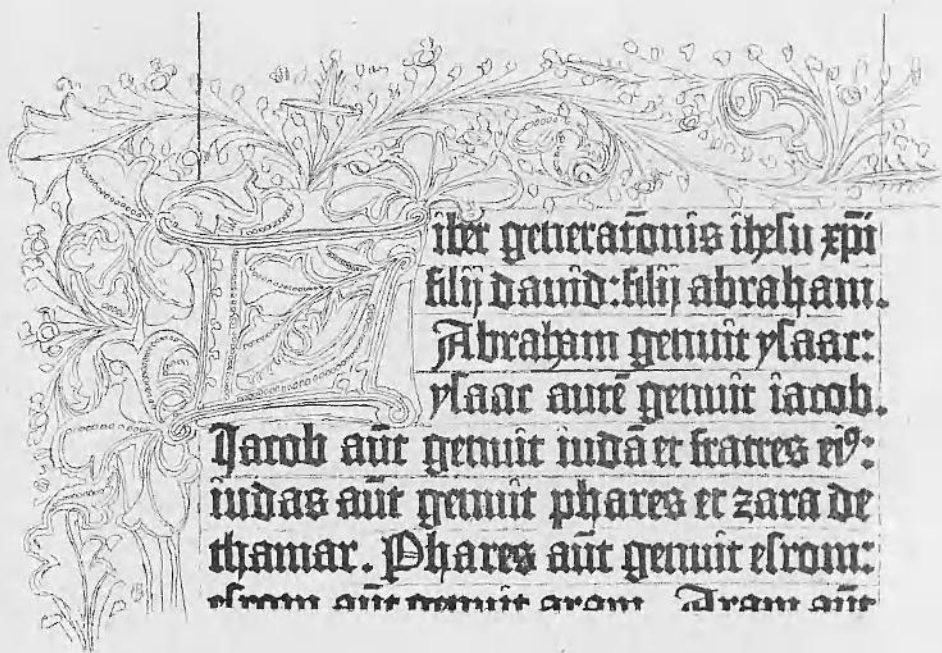 iber generatōnis ihesu xp̄i
filij dauid: filij abraham.
Abraham genuit ysaac:
ysaac autē genuit iacob.
Jacob aūt genuit iudā et fratres eiꝰ:
iudas aūt genuit phares et zara de
thamar. Phares aūt genuit esrom:
esrom aūt genuit aram Aram aūt